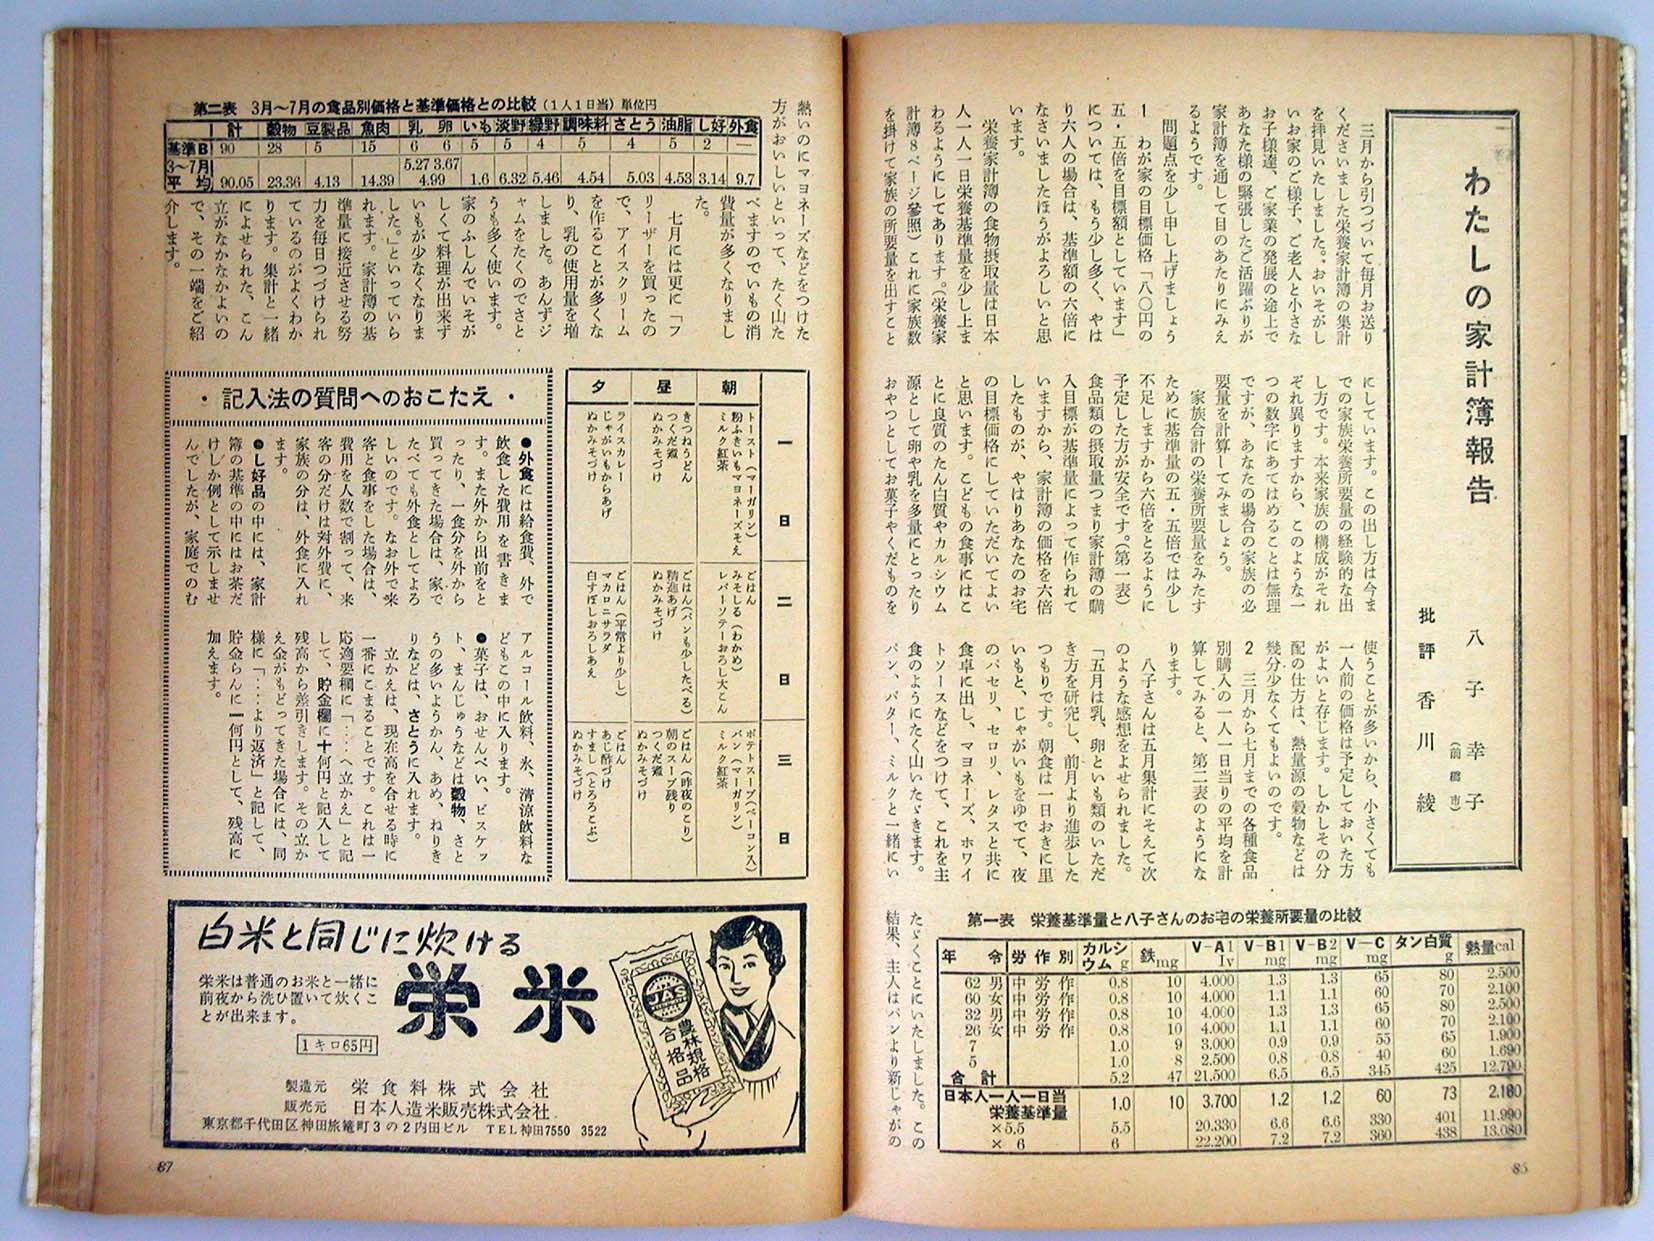 わたしの家計簿報告
八子幸子
(前橋市)
批評 香川綾
三月から引つづいて毎月お送り
くださいました栄養家計簿の集計
を拝見いたしました。おいそがし
いお家のご様子、ご老人と小さな
お子様達、ご家業の発展の途上で
あなた様の緊張したご活躍ぶりが
家計簿を通して目のあたりにみえ
るようです。
問題点を少し申し上げましょう
1 わが家の目標価格「八〇円の
五・五倍を目標額としています」
については、もう少し多く、やは
り六人の場合は、基準額の六倍に
なさいましたほうがよろしいと思
います。
栄養家計簿の食物摂取量は日本
人一人一日栄養基準量を少し上ま
わるようにしてあります。(栄養家
計簿8ページ参照)これに家族数
を掛けて家族の所要量を出すこと
にしています。この出し方は今ま
での家族栄養所要量の経験的な出
し方です。本来家族の構成がそれ
ぞれ異りますから、このような一
つの数字にあてはめることは無理
ですが、あなたの場合の家族の必
要量を計算してみましょう。
家族合計の栄養所要量をみたす
ために基準量の五・五倍では少し
不足しますから六倍をとるように
予定した方が安全です。(第一表)
食品類の摂取量つまり家計簿の購
入目標が基準量によって作られて
いますから、家計簿の価格を六倍
したものが、やはりあなたのお宅
の目標価格にしていただいてよい
と思います。こどもの食事にはこ
とに良質のたん白質やカルシウム
源として卵や乳を多量にとったり
おやつとしてお菓子やくだものを
使うことが多いから、小さくても
一人前の価格は予定しておいた方
がよいと存じます。しかしその分
配の仕方は、熱量源の穀物などは
幾分少なくてもよいのです。
2 三月から七月までの各種食品
別購入の一人一日当りの平均を計
算してみると、第二表のようにな
ります。
八子さんは五月集計にそえて次
のような感想をよせられました。
「五月は乳、卵といも類のいただ
き方を研究し、前月より進歩した
つもりです。朝食は一日おきに里
いもと、じゃがいもをゆでて、夜
のパセリ、セロリ、レタスと共に
食卓に出し、マヨネーズ、ホワイ
トソースなどをつけて、これを主
食のようにたく山いたゞきます。
パン、バター、ミルクと一緒にい
たゞくことにいたしました。この
結果、主人はパンより新じゃがの
第一表 栄養基準量と八子さんのお宅の栄養所要量の比較
年令 労作別 カルシウムg 鉄mg V-A1 Iv V-B1 mg V-B2 mg V-C mg タン白質g 熱量cal
62 男 中労作 0.8 10 4.000 1.3 1.3 65 80 2.500
60 女 中労作 0.8 10 4.000 1.1 1.1 60 70 2.100
32 男 中労作 0.8 10 4.000 1.3 1.3 65 80 2.500
26 女 中労作 0.8 10 4.000 1.1 1.1 60 70 2.100
7 1.0 9 3.000 0.9 0.9 55 65 1.900
5 1.0 8 2.500 0.8 0.8 40 60 1.690
合計 5.2 47 21.500 6.5 6.5 345 425 12.790
日本人一人一日当栄養基準量 1.0 10 3.700 1.2 1.2 60 73 2.180
×5.5 5.5 20.330 6.6 6.6 330 401 11.990
×6 6 22.200 7.2 7.2 360 438 13.080
85
第二表 3月〜7月の食品別価格と基準価格との比較(1人1日当)単位円
計 穀物 豆製品 魚肉 乳 卵 いも 淡野 緑野 調味料 さとう 油脂 し好 外食
基準B 90 28 5 15 6 6 5 5 4 5 4 5 2 —
3〜7月平均 90.05 23.36 4.13 14.39 5.27 3.67 4.99 1.6 6.32 5.46 4.54 5.03 4.53 3.14 9.7
熱いのにマヨネーズなどをつけた
方がおいしいといって、たく山た
べますのでいもの消
費量が多くなりまし
た。
七月には更に「フ
リーザーを買ったの
で、アイスクリーム
を作ることが多くな
り、乳の使用量を増
しました。あんずジ
ャムをたくのでさと
うも多く使います。
家のふしんでいそが
しくて料理が出来ず
いもが少なくなりま
した。」といっていら
れます。家計簿の基
準量に接近させる努
力を毎日つづけられ
ているのがよくわか
ります。集計と一緒
によせられた、こん
立がなかなかよいの
で、その一端をご紹
介します。
一日 二日 三日
朝
トースト(マーガリン)
粉ふきいもマヨネーズそえ
ミルク紅茶
ごはん
みそしる(わかめ)
レバーソテーおろし大こん
ポテトスープ(ベーコン入)
パン(マーガリン)
ミルク紅茶
昼
きつねうどん
つくだ煮
ぬかみそづけ
ごはん(パンも少したべる)
精進あげ
ぬかみそづけ
ごはん(昨夜のこり)
朝のスープ残り
つくだ煮
ぬかみそづけ
夕
ライスカレー
じゃがいもからあげ
ぬかみそづけ
ごはん(平常より少し)
マカロニサラダ
白すぼしおろしあえ
ごはん
あじ酢づけ
すまし(とろろこぶ)
ぬかみそづけ
・記入法の質問へのおこたえ・
●外食には給食費、外で
飲食した費用を書きま
す。また外から出前をと
ったり、一食分を外から
買ってきた場合は、家で
たべても外食としてよろ
しいのです。なお外で来
客と食事をした場合は、
費用を人数で割って、来
客の分だけは対外費に、
家族の分は、外食に入れ
ます。
●し好品の中には、家計
簿の基準の中にはお茶だ
けしか例として示しませ
んでしたが、家庭でのむ
アルコール飲料、氷、清涼飲料な
どもこの中に入ります。
●菓子は、おせんべい、ビスケッ
ト、まんじゅうなどは穀物、さと
うの多いようかん、あめ、ねりき
りなどは、さとうに入れます。
立かえは、現在高を合せる時に
一番にこまることです。これは一
応適要欄に「‥‥へ立かえ」と記
して、貯金欄に十何円と記入して
残高から差引きします。その立か
え金がもどってきた場合には、同
様に「‥‥より返済」と記して、
貯金らんに一何円として、残高に
加えます。
白米と同じに炊ける
栄米
栄米は普通のお米と一緒に
前夜から洗ひ置いて炊くこ
とが出来ます。
1キロ65円
JAS
農林規格
合格品
製造元 栄食料株式会社
販売元 日本人造米販売株式会社
東京都千代田区神田旅篭町3の2内田ビル TEL神田7550 3522
87